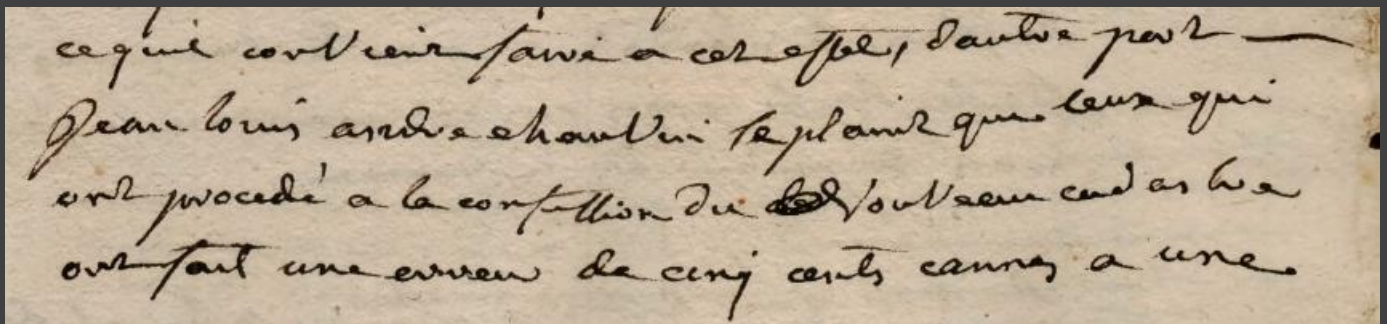 ce quil convient faire a cet effet, dautre part
Jean louis andre chauvin se plaint que ceux qui
ont procedé a la confession du nouveau cadastre
ont fait une erreur de cinq cents cannes a une